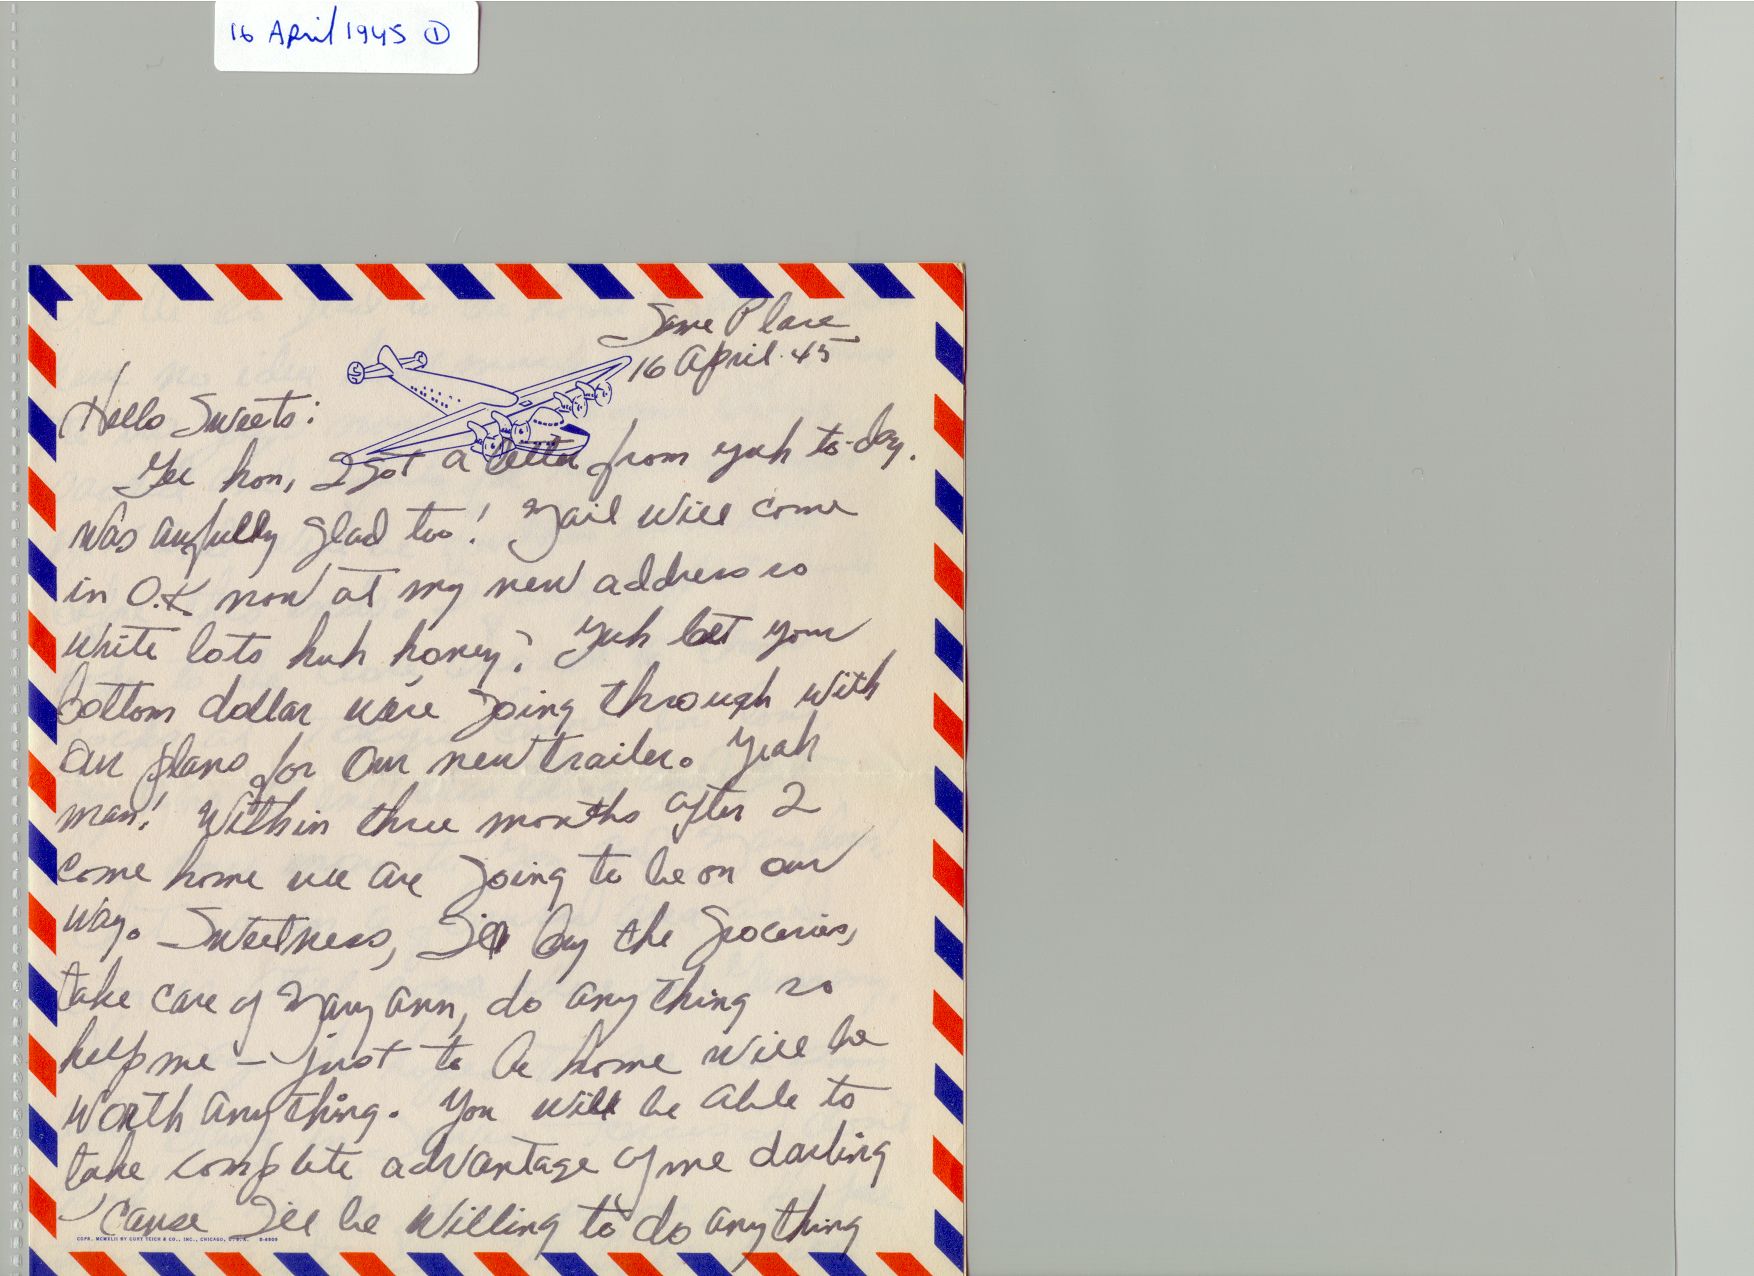 16 April 1945 ①
Same Place
16 April. 45
Hello Sweets:
Gee hon, I got a letter from yuh to-day.
Was awfully glad too! Mail will come
in O.K. now at my new address so
write lots huh honey? Yuh bet your
bottom dollar we're going through with
our plans for our new trailer. Yeah
man! Within three months after I
come home we are going to be on our
way. Sweetness, I'll buy the groceries,
take care of Mary Ann, do anything so
help me – just to be home will be
worth anything. You will be able to
take complete advantage of me darling
'cause I'll be willing to do anything
COPR. MCMXLII BY CURT TEICH & CO., INC., CHICAGO, U.S.A.